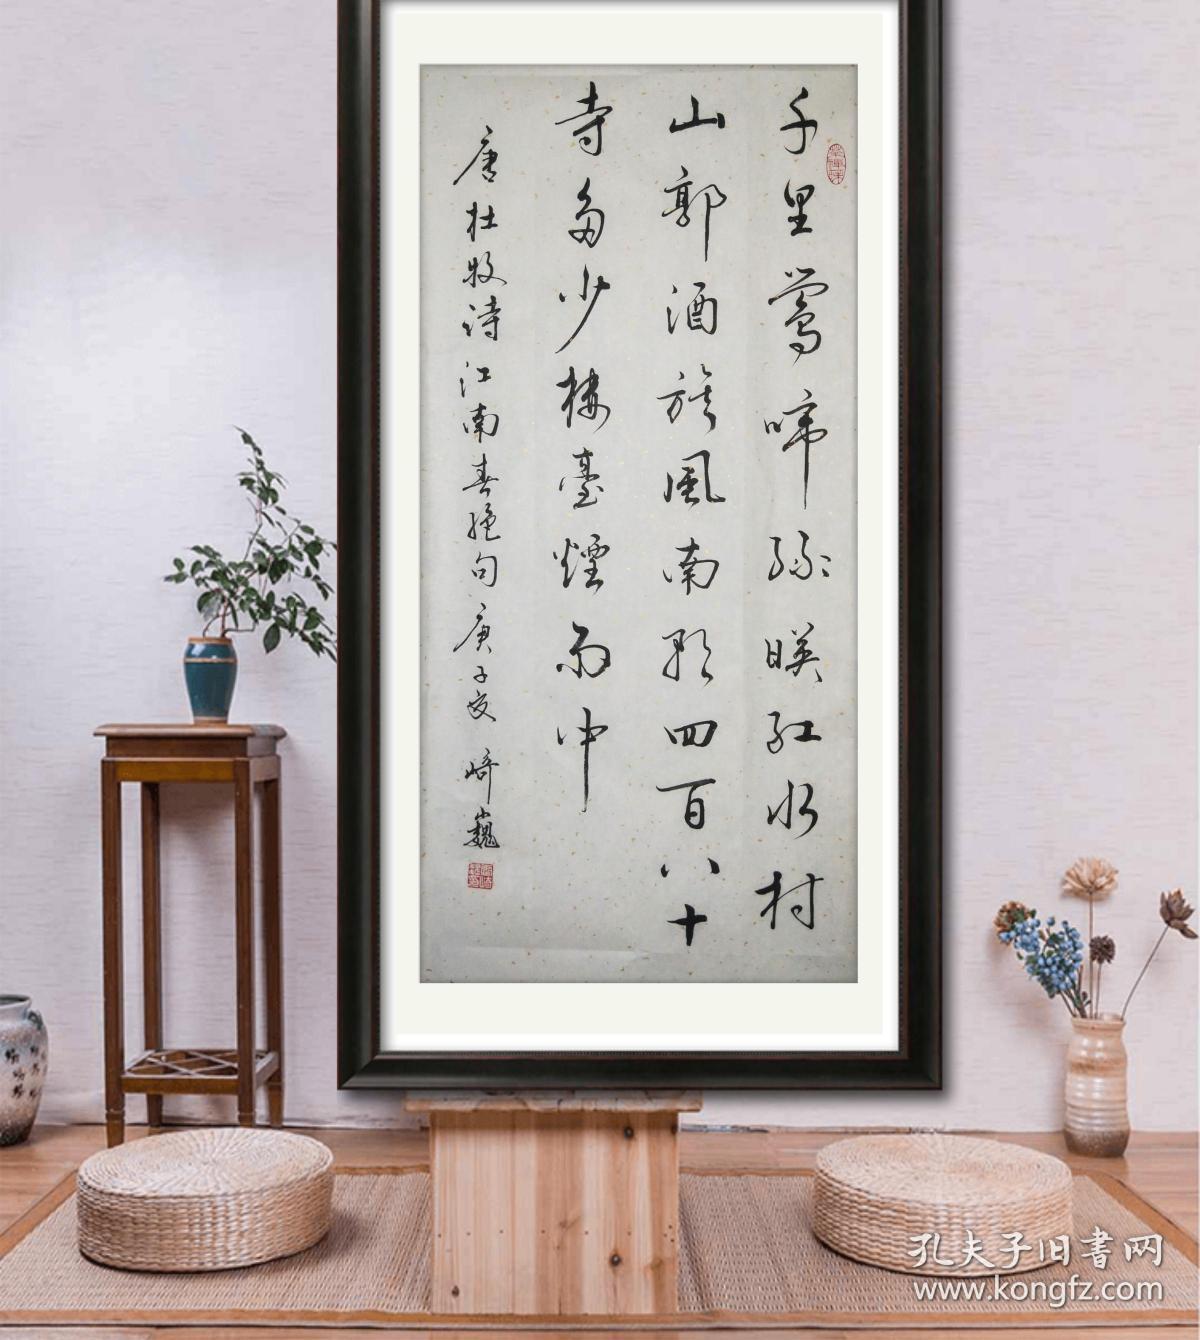 千里鶯啼綠映紅水村
山郭酒旗風南朝四百八十
寺多少樓臺煙雨中
唐杜牧詩江南春絕句庚子夏 崎巍
孔夫子旧書网
www.kongfz.com